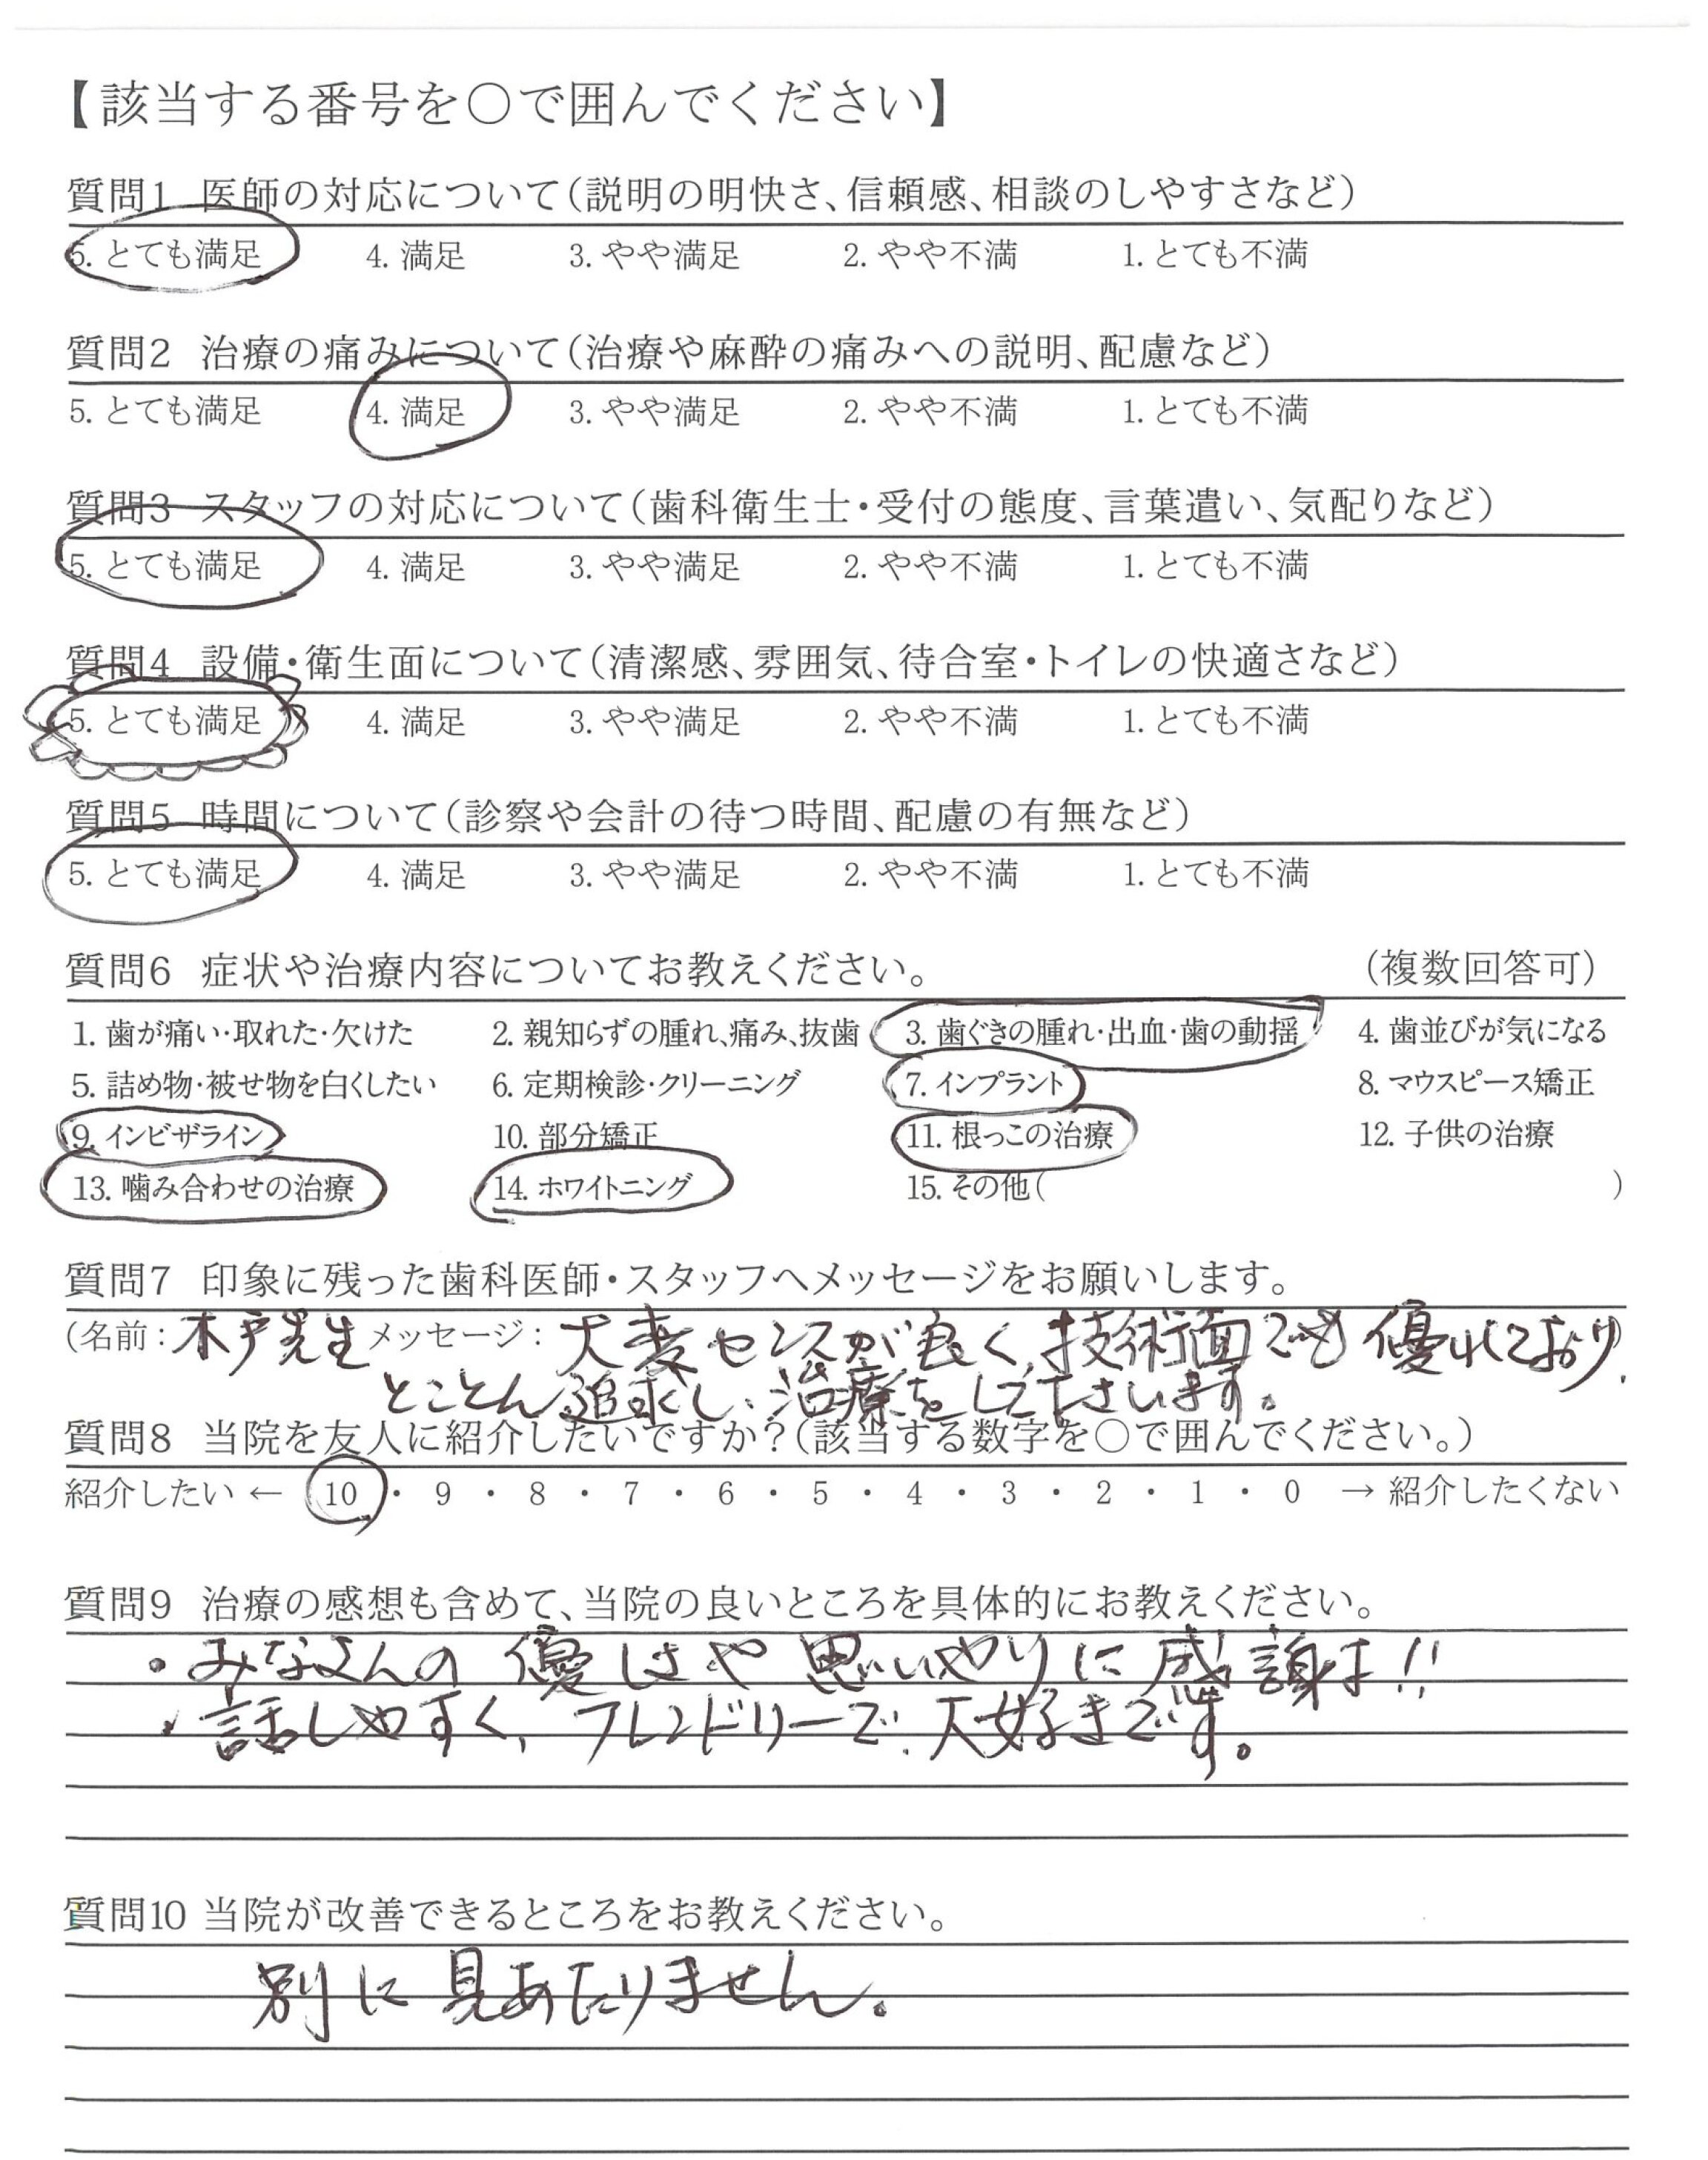 【該当する番号を○で囲んでください】
質問1 医師の対応について(説明の明快さ、信頼感、相談のしやすさなど)
5. とても満足 4. 満足 3. やや満足 2. やや不満 1. とても不満
質問2 治療の痛みについて(治療や麻酔の痛みへの説明、配慮など)
5. とても満足 4. 満足 3. やや満足 2. やや不満 1. とても不満
質問3 スタッフの対応について(歯科衛生士・受付の態度、言葉遣い、気配りなど)
5. とても満足 4. 満足 3. やや満足 2. やや不満 1. とても不満
質問4 設備・衛生面について(清潔感、雰囲気、待合室・トイレの快適さなど)
5. とても満足 4. 満足 3. やや満足 2. やや不満 1. とても不満
質問5 時間について(診察や会計の待つ時間、配慮の有無など)
5. とても満足 4. 満足 3. やや満足 2. やや不満 1. とても不満
質問6 症状や治療内容についてお教えください。 (複数回答可)
1. 歯が痛い・取れた・欠けた 2. 親知らずの腫れ、痛み、抜歯 3. 歯ぐきの腫れ・出血・歯の動揺 4. 歯並びが気になる
5. 詰め物・被せ物を白くしたい 6. 定期検診・クリーニング 7. インプラント 8. マウスピース矯正
9. インビザライン 10. 部分矯正 11. 根っこの治療 12. 子供の治療
13. 噛み合わせの治療 14. ホワイトニング 15. その他( )
質問7 印象に残った歯科医師・スタッフへメッセージをお願いします。
(名前: 木戸先生 メッセージ: 大変センスが良く、技術面でも優れており、
とことん追求し、治療をして下さいます。
質問8 当院を友人に紹介したいですか?(該当する数字を○で囲んでください。)
紹介したい ← 10 ・ 9 ・ 8 ・ 7 ・ 6 ・ 5 ・ 4 ・ 3 ・ 2 ・ 1 ・ 0 → 紹介したくない
質問9 治療の感想も含めて、当院の良いところを具体的にお教えください。
・みなさんの優しさや思いやりに感謝す!!
・話しやすく、フレンドリーで、大好きです。
質問10 当院が改善できるところをお教えください。
別に見あたりません。